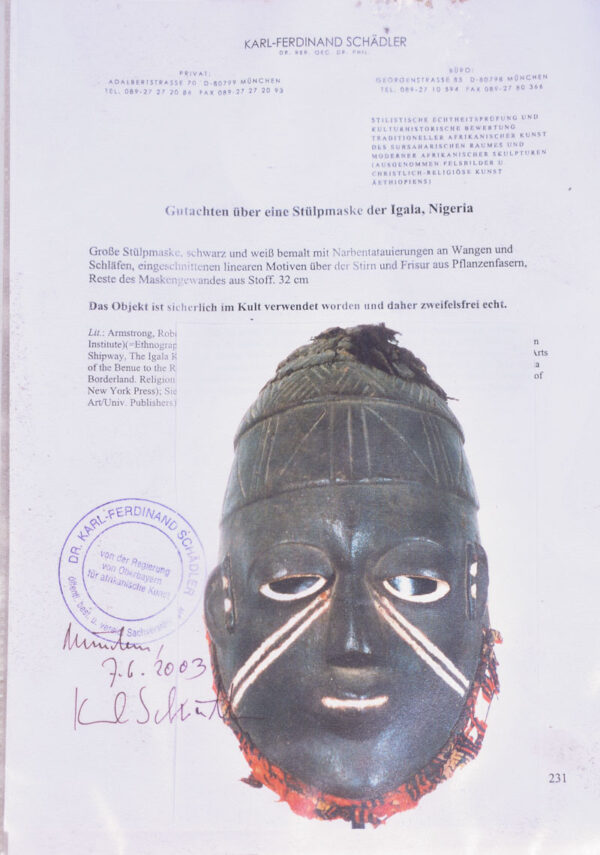 KARL-FERDINAND SCHÄDLER
DR. RER. OEC. DR. PHIL.
PRIVAT:
ADALBERTSTRASSE 70 D-80799 MÜNCHEN
TEL. 089-27 27 20 86 FAX 089-27 27 20 93
BÜRO:
GEORGENSTRASSE 85 D-80798 MÜNCHEN
TEL. 089-27 10 594 FAX 089-27 80 366
STILISTISCHE ECHTHEITSPRÜFUNG UND
KULTURHISTORISCHE BEWERTUNG
TRADITIONELLER AFRIKANISCHER KUNST
DES SUBSAHARISCHEN RAUMES UND
MODERNER AFRIKANISCHER SKULPTUREN
(AUSGENOMMEN FELSBILDER U.
CHRISTLICH-RELIGIÖSE KUNST
ÄTHIOPIENS)
Gutachten über eine Stülpmaske der Igala, Nigeria
Große Stülpmaske, schwarz und weiß bemalt mit Narbentatauierungen an Wangen und
Schläfen, eingeschnittenen linearen Motiven über der Stirn und Frisur aus Pflanzenfasern,
Reste des Maskengewandes aus Stoff. 32 cm
Das Objekt ist sicherlich im Kult verwendet worden und daher zweifelsfrei echt.
Lit.: Armstrong, Robe
Institute)(=Ethnograp
Shipway, The Igala K Arts
of the Benue to the R
Borderland. Religion of
New York Press); Sie
Art/Univ. Publishers)
DR. KARL-FERDINAND SCHÄDLER
von der Regierung
von Oberbayern
für afrikanische Kunst
öffentl. best. u. vereid. Sachverst.
München,
7.6.2003
231